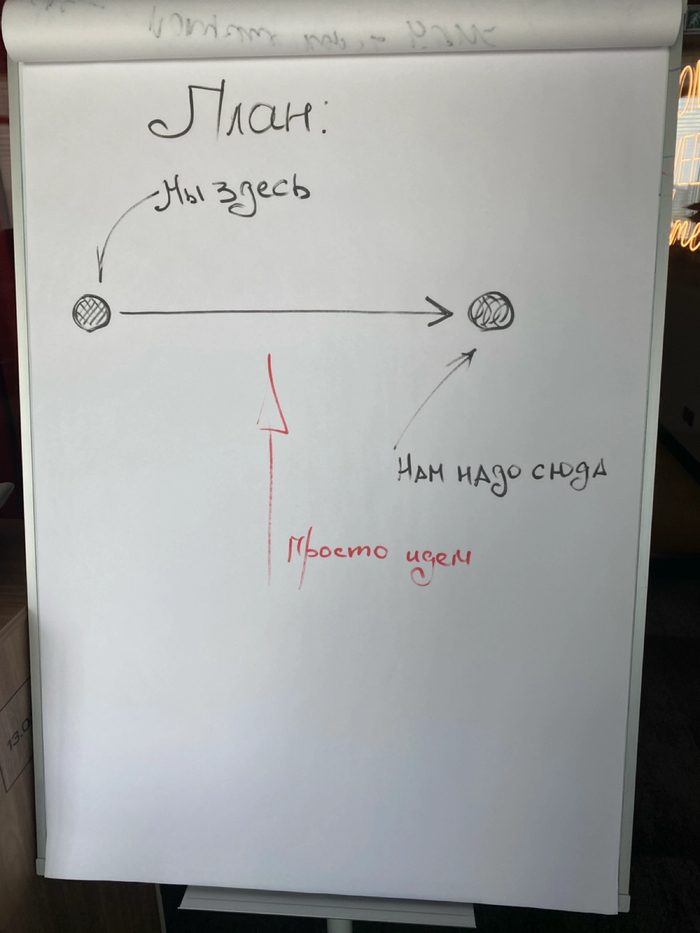 План:
Мы здесь
Нам надо сюда
Просто идем